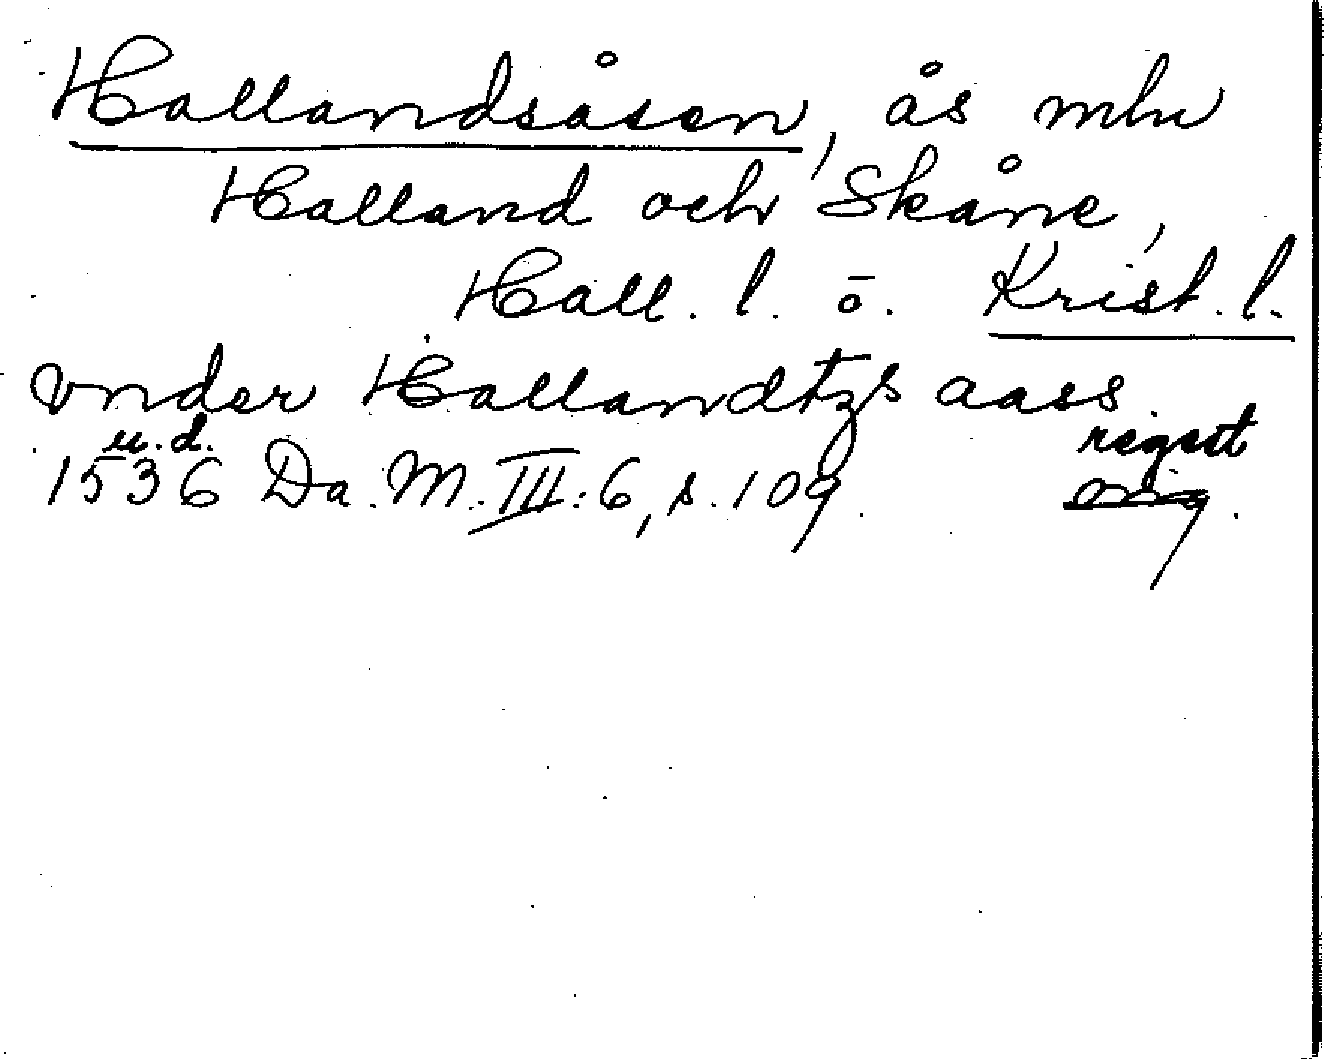 Hallandsåsen, ås mln
Halland och Skåne,
Hall. l. o. Krist. l.
vnder Hallandtzs aass.
u.d. regest
1536 Da. M. III:6, s. 109. orig.